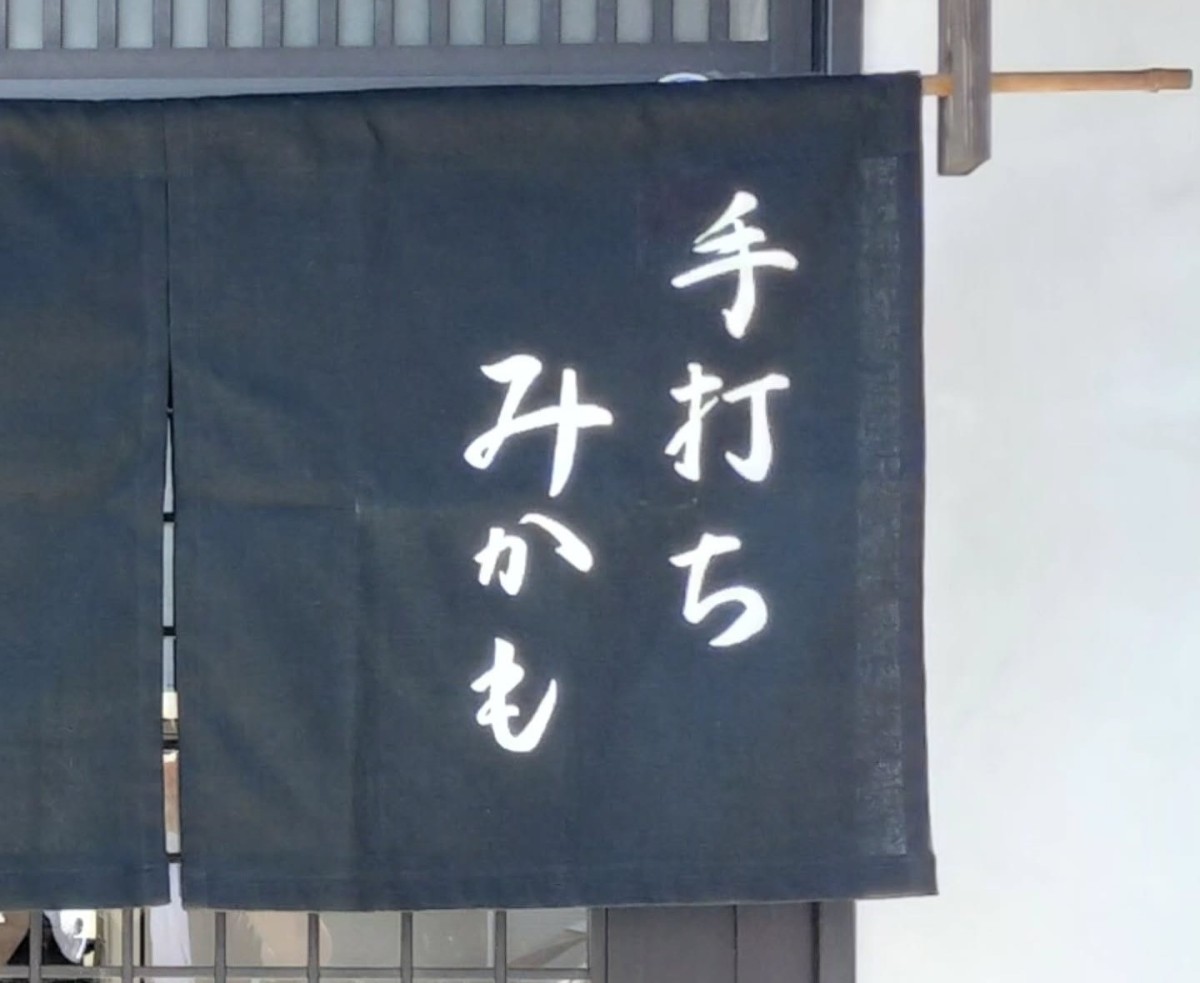 手打ち
みかも